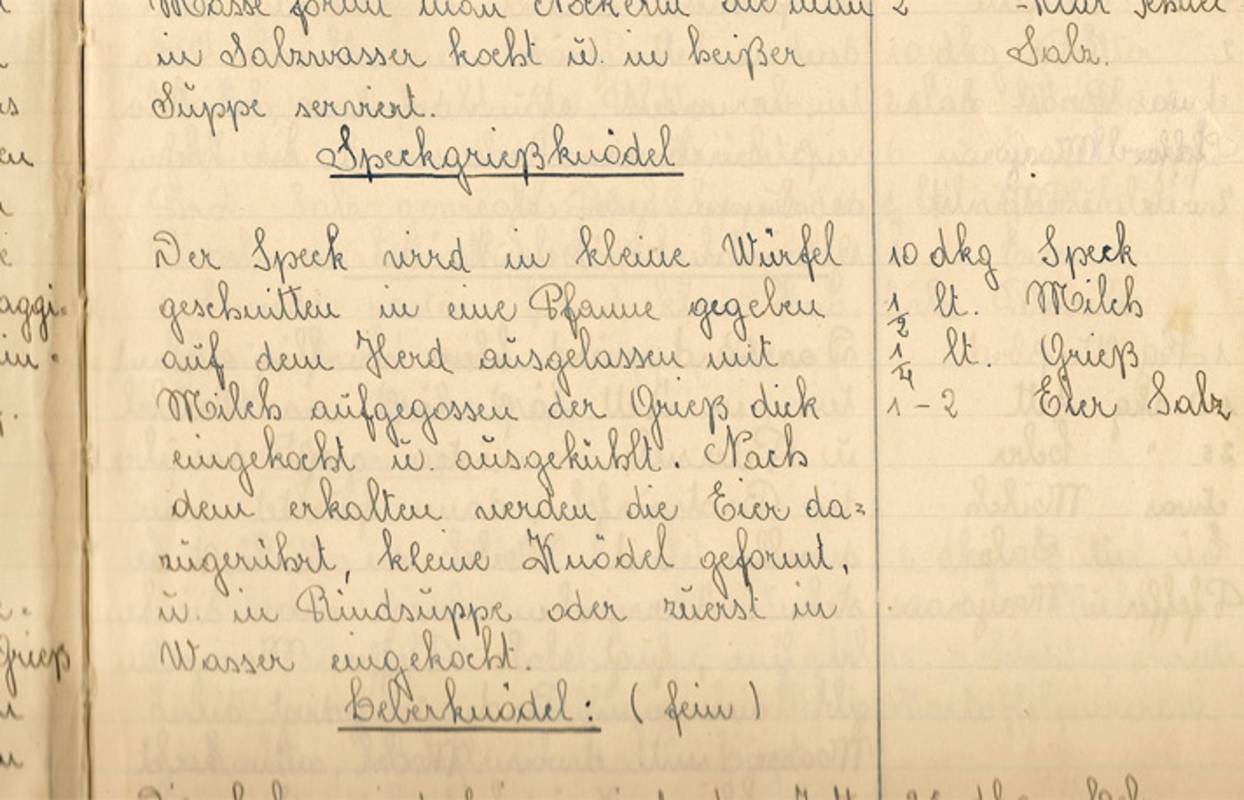 Masse formt man Nockerln die man
in Salzwasser kocht u. in heißer
Suppe serviert.
2
Salz.
Speckgrießknödel
Der Speck wird in kleine Würfel
geschnitten in eine Pfanne gegeben
auf dem Herd ausgelassen mit
Milch aufgegossen der Grieß dick
eingekocht u. ausgekühlt. Nach
dem erkalten werden die Eier da=
zugerührt, kleine Knödel geformt,
u. in Rindsuppe oder zuerst in
Wasser eingekocht.
10 dkg Speck
1/2 lt. Milch
1/4 lt. Grieß
1-2 Eier Salz
Leberknödel: (fein)